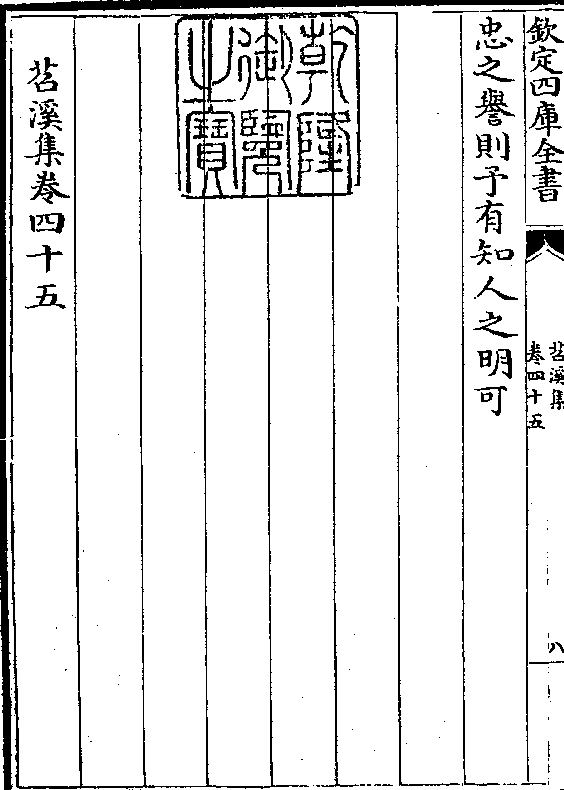 欽定四庫全書
苕溪集
卷四十五
八
忠之譽則予有知人之明可
乾隆
御覽
之寶
苕溪集卷四十五